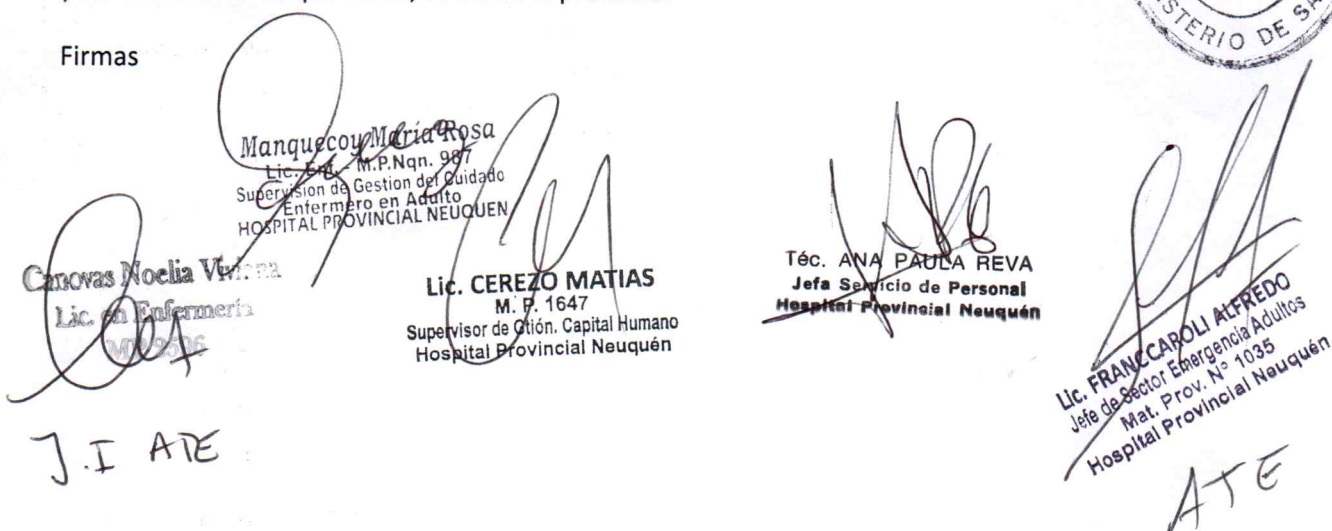 Firmas
MINISTERIO DE SA
Manquecoy María Rosa
Lic. Enf. - M.P.Nqn. 987
Supervision de Gestion del Cuidado
Enfermero en Adulto
HOSPITAL PROVINCIAL NEUQUEN
Canovas Noelia Viviana
Lic. en Enfermería
J.I ATE
Lic. CEREZO MATIAS
M. P. 1647
Supervisor de Gtión. Capital Humano
Hospital Provincial Neuquén
Téc. ANA PAULA REVA
Jefa Servicio de Personal
Hospital Provincial Neuquén
Lic. FRANCCAROLI ALFREDO
Jefe de Sector Emergencia Adultos
Mat. Prov. N° 1035
Hospital Provincial Neuquén
ATE